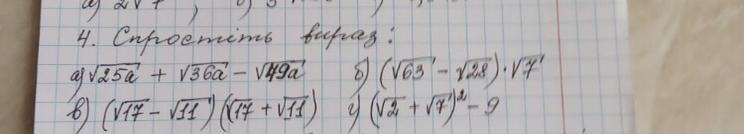 а) 2√7 ; б) 3
4. Спростіть вираз:
а) √25a + √36a − √49a   б) (√63 − √28)·√7
в) (√17 − √11)(√17 + √11)   г) (√2 + √7)² − 9